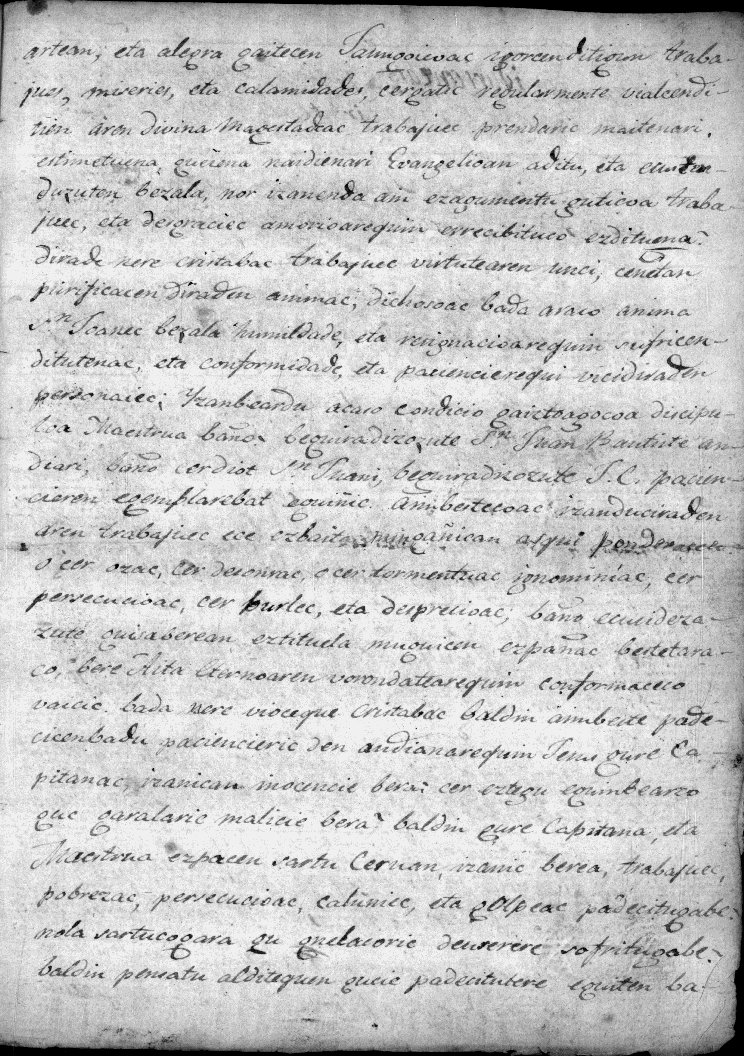 artean, eta alegra gaitecen Jaungoicoac igorcenditigun traba-
jues, miseries, eta calamidades, cergatic regularmente vialcendi-
tien aren divina Magestadeac trabajuec prendaric maitenari,
estimetuena, guciena naidienari Evangelioan aditu, eta ecusten-
duzuten bezala, nor izanenda ain ezagumentu guticoa traba-
juec, eta desgraciec amorioarequin errecibituco ezdituena?
dirade nere cristabac trabajuec virtutearen unci, cenetan
purificacen diraden animac; dichosoac bada araco anima
Sn. Joanec bezala humildade, eta resignacioarequin sufricen-
ditutenac, eta conformidade, eta paciencierequi vicidiraden
personaiec; Izanbeardu acaso condicio gaiztoagocoa discipu-
loa Maestrua baño? beguiradizozute Sn. Juan Bautiste an-
diari, baño cerdiot Sn. Juani, beguiradizozute J. C. pacien-
cieren egemplarebat eguiñic. Ainbertecoac izanduciraden
aren trabajuec ece ezbaita mingañican asqui ponderaceco
o cer ozac, cer desonrac, o cer tormentuac ignominiac, cer
persecucioac, cer burlec, eta desprecioac; baño ecusideza-
zute guisaberean eztituela muguicen ezpañac bestetara-
co, bere Aita Eternoaren vorondatearequin conformaceco
vaicic. bada nere vioceque Cristabac baldin ainbeste pade-
cicenbadu paciencieric den andianarequin Jesus gure Ca-
pitanac, izanican inocencie bera: cer eztegu eguinbearco
guc garalaric malicie bera? baldin gure Capitana, eta
Maestrua ezpacen sartu Ceruan, izanic berea, trabajuec,
pobrezac, persecucioac, caluniec, eta golpeac padecitugabe:
nola sartucogara gu gnelacoric deusere sofritugabe?
baldin pensatu alditequen gucic padecitutere eguiten ba-